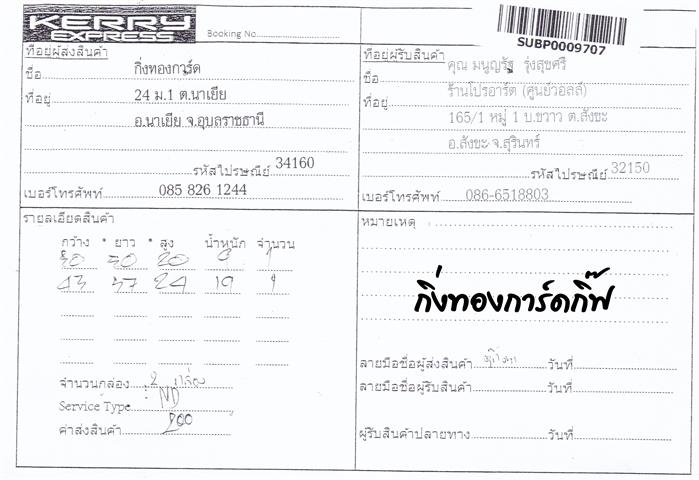 KERRY
EXPRESS
Booking No.
SUBP0009707
ที่อยู่ผู้ส่งสินค้า
ชื่อ กิ่งทองการ์ด
ที่อยู่ 24 ม.1 ต.นาเยีย
อ.นาเยีย จ.อุบลราชธานี
รหัสไปรษณีย์ 34160
เบอร์โทรศัพท์ 085 826 1244
ที่อยู่ผู้รับสินค้า
ชื่อ คุณ มนูญรัฐ รุ่งสุขศรี
ที่อยู่ ร้านโปรอาร์ต (ศูนย์วอลล์)
165/1 หมู่ 1 บ.ขวาว ต.สังขะ
อ.สังขะ จ.สุรินทร์
รหัสไปรษณีย์ 32150
เบอร์โทรศัพท์ 086-6518803
รายละเอียดสินค้า
กว้าง * ยาว * สูง น้ำหนัก จำนวน
30 20 1
43 37 24 19 1
จำนวนกล่อง 2 กล่อง
Service Type : ND
ค่าส่งสินค้า 200
หมายเหตุ
กิ่งทองการ์ดกิ๊ฟ
ลายมือชื่อผู้ส่งสินค้า วันที่
ลายมือชื่อผู้รับสินค้า วันที่
ผู้รับสินค้าปลายทาง วันที่